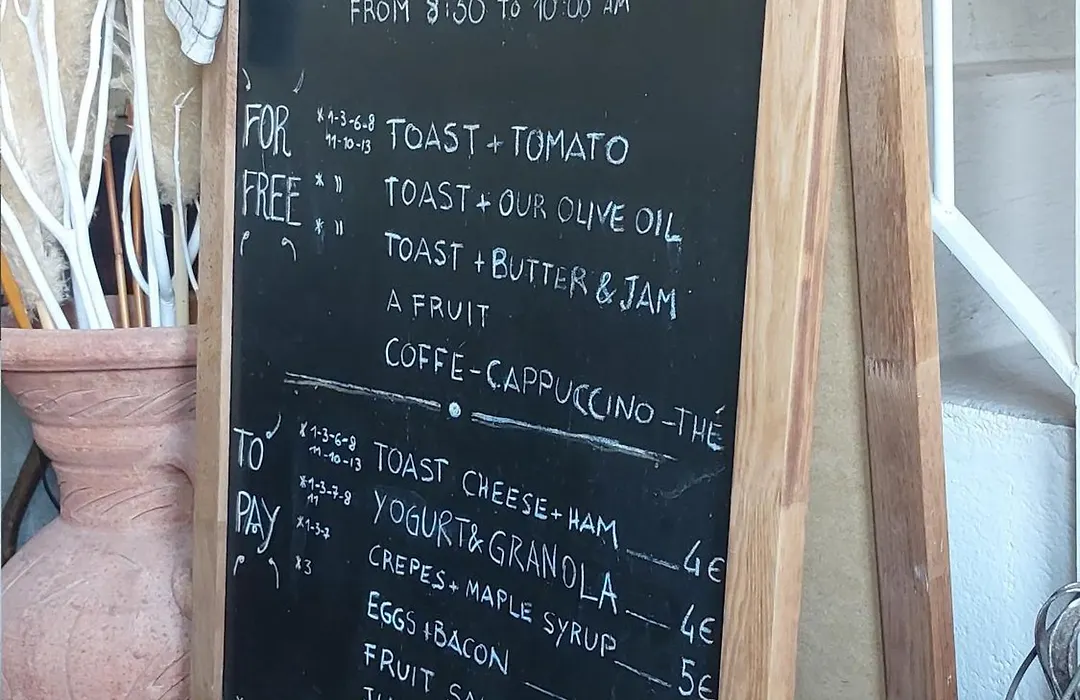 FROM 8:30 TO 10:00 AM
FOR
FREE
*1-3-6-8
11-10-13
TOAST + TOMATO
* "
TOAST + OUR OLIVE OIL
* "
TOAST + BUTTER & JAM
A FRUIT
COFFÉ - CAPPUCCINO - THÉ
TO
PAY
*1-3-6-8
11-10-13
TOAST CHEESE + HAM 4€
*1-3-7-8
11
YOGURT & GRANOLA 4€
*1-3-7
CREPES + MAPLE SYRUP 5€
*3
EGGS + BACON
FRUIT